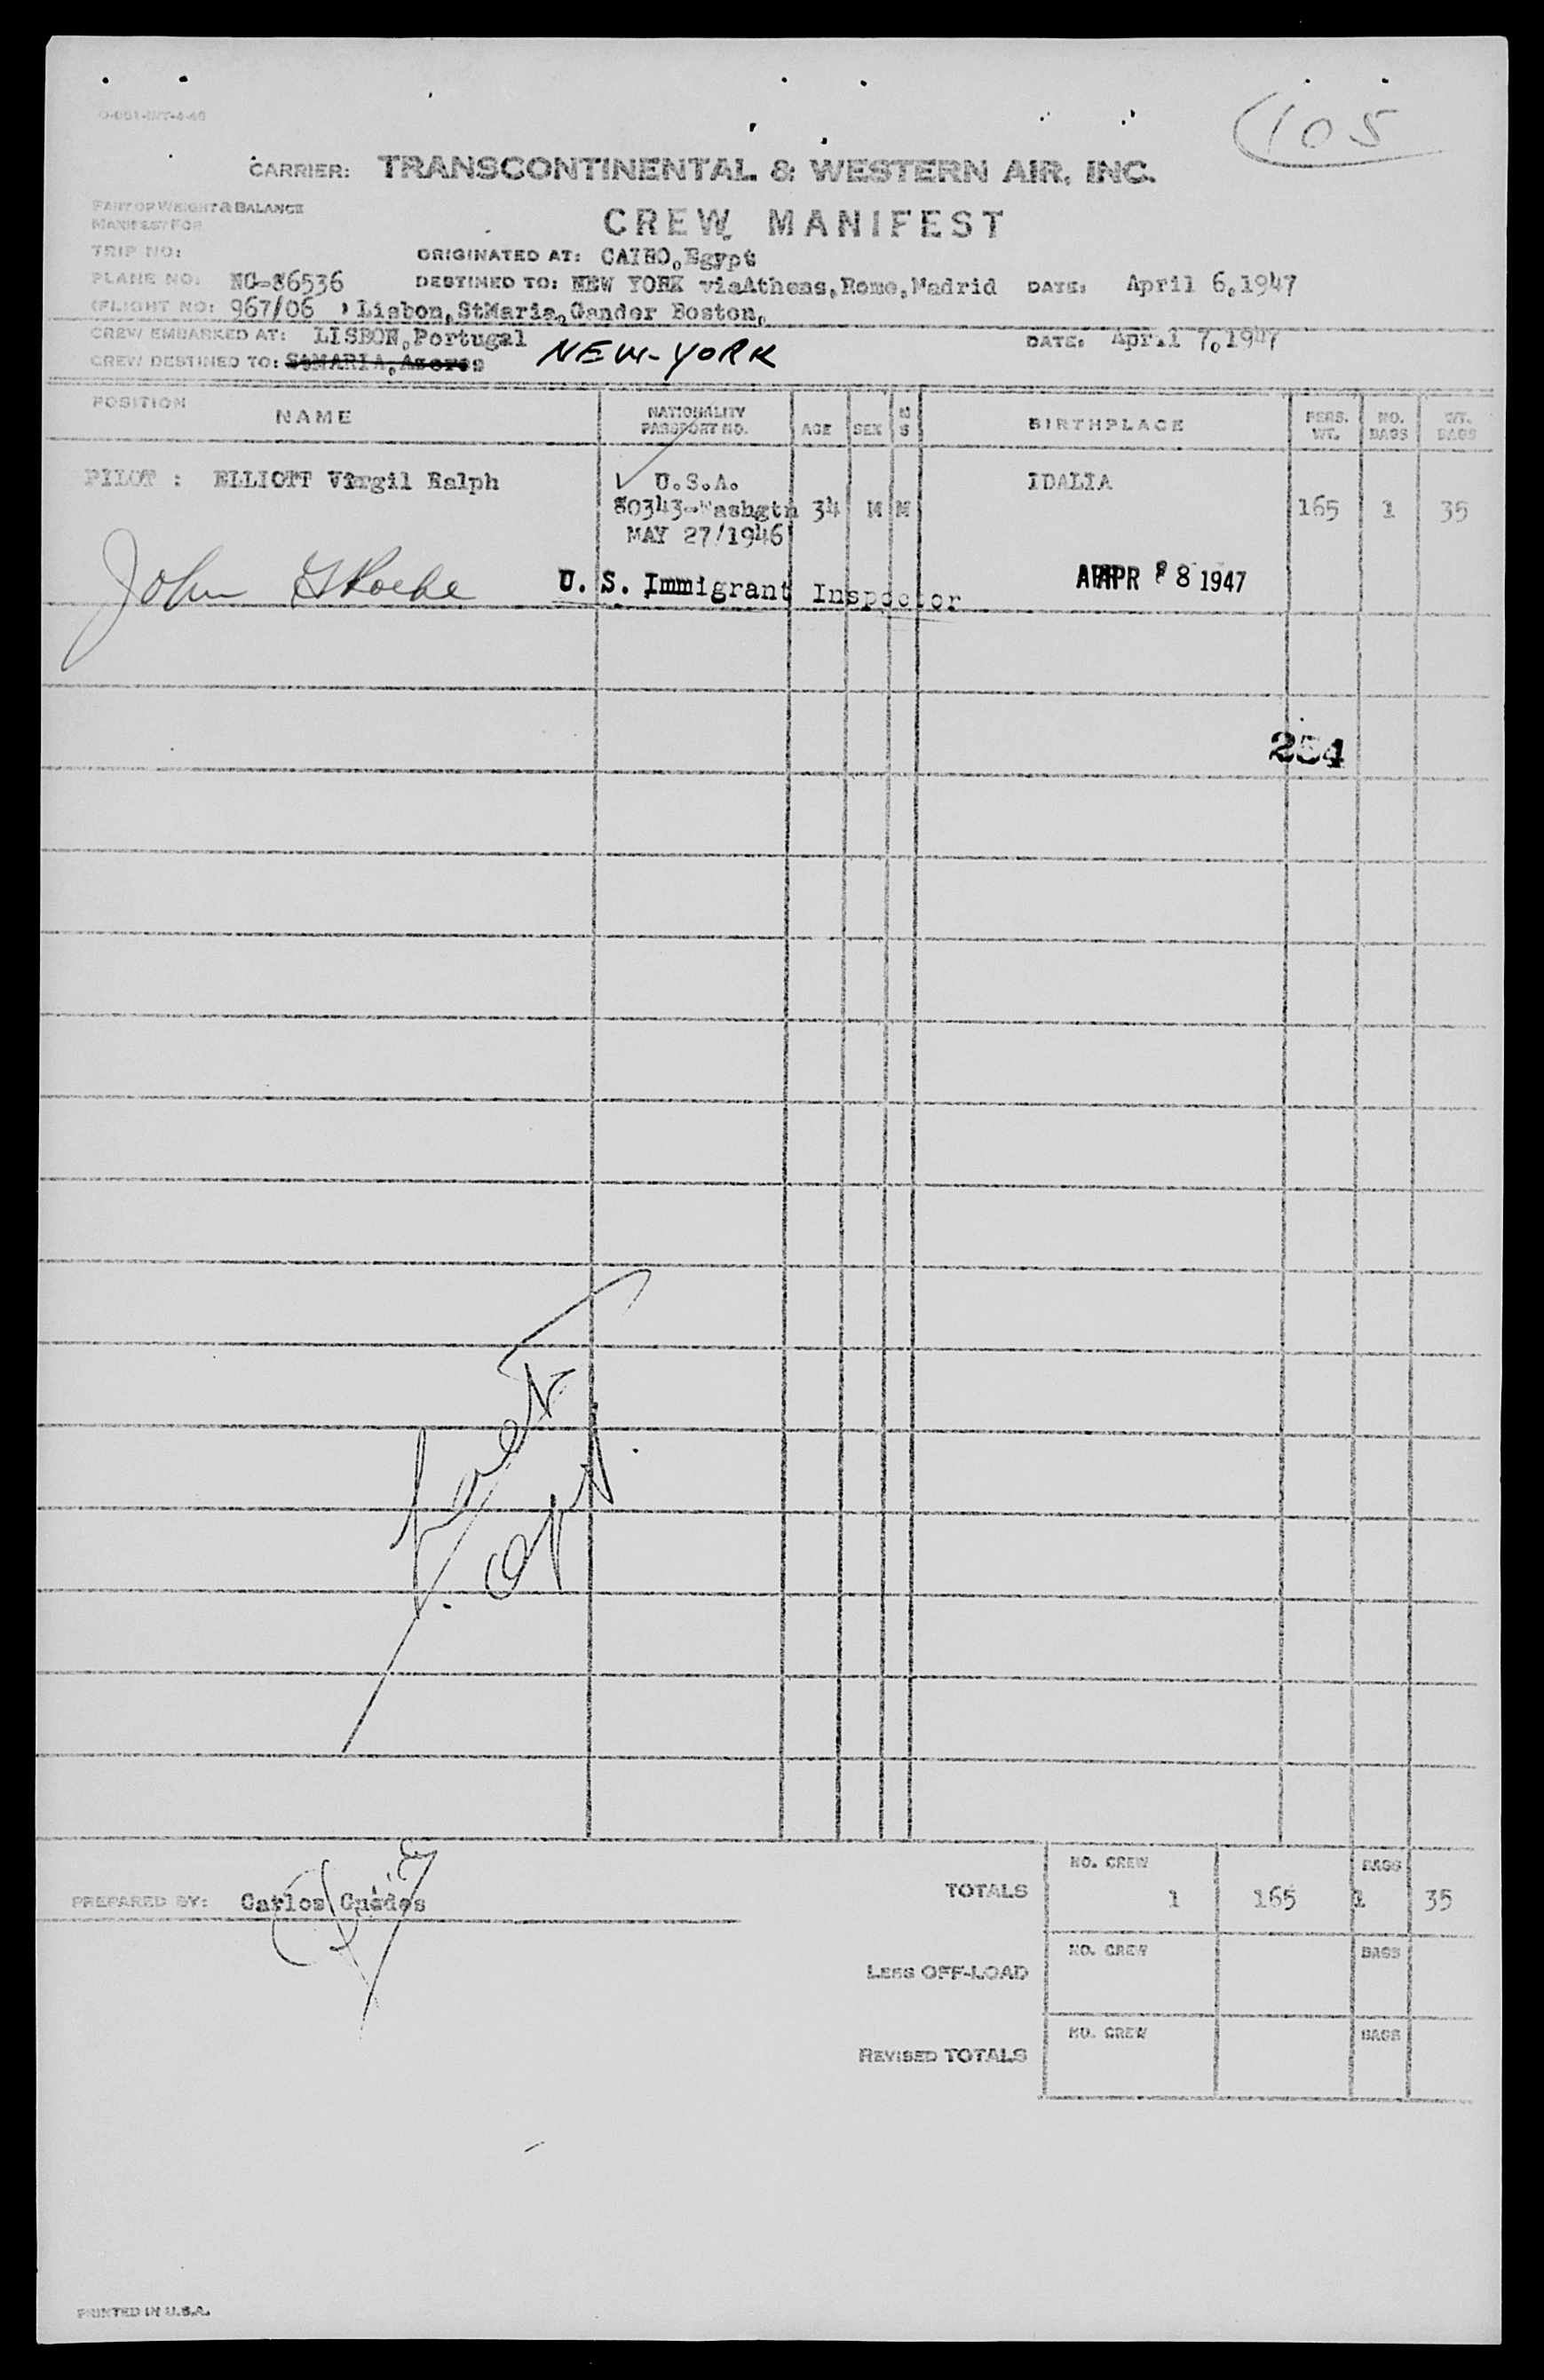 O-051-INT-4-46
105
CARRIER: TRANSCONTINENTAL & WESTERN AIR, INC.
PART OF WEIGHT & BALANCE
MANIFEST FOR
CREW MANIFEST
TRIP NO: ORIGINATED AT: CAIRO, Egypt
PLANE NO: NC-86536 DESTINED TO: NEW YORK viaAthens, Rome, Madrid DATE: April 6, 1947
(FLIGHT NO: 967/06 ) Lisbon, StMaria, Gander Boston,
CREW EMBARKED AT: LISBON, Portugal DATE: April 7, 1947
CREW DESTINED TO: SaMARIA, Azores NEW-YORK
POSITION NAME NATIONALITY PASSPORT NO. AGE SEX M S BIRTHPLACE PERS. WT. NO. BAGS WT. BAGS
PILOT : ELLIOTT Virgil Ralph U.S.A. IDALIA
80343-Washgtn 34 M M 165 1 35
MAY 27/1946
John U. S. Immigrant Inspector APR 8 1947
254
PREPARED BY: Carlos Guedes
TOTALS NO. CREW 1 165 BAGS 1 35
LESS OFF-LOAD NO. CREW BAGS
REVISED TOTALS NO. CREW BAGS
PRINTED IN U.S.A.